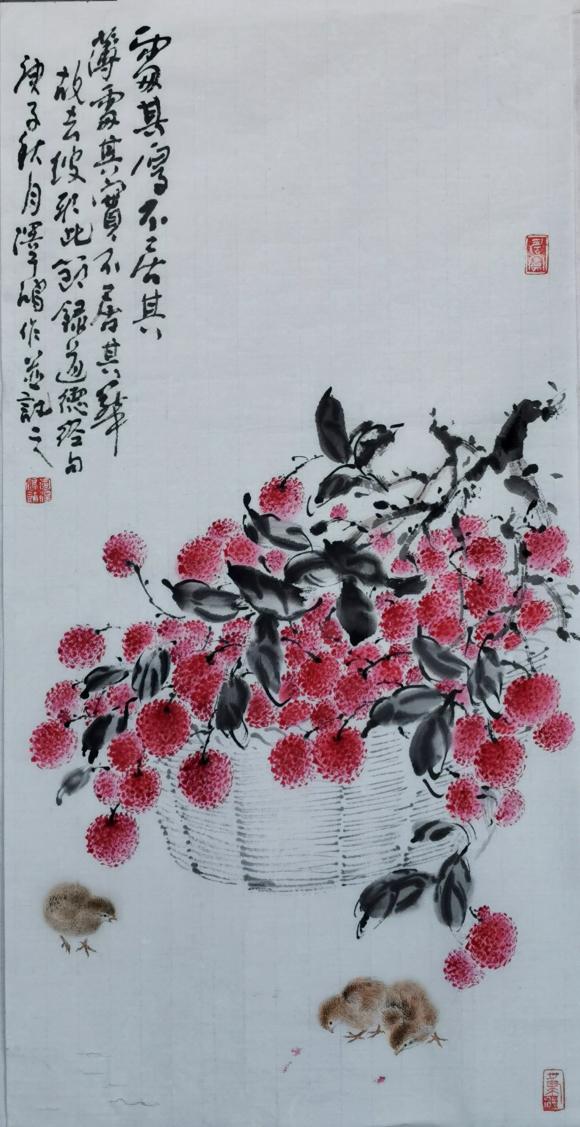 處其厚不居其
薄處其實不居其華
故去彼取此節錄道德經句
庚子秋月澤作並記之